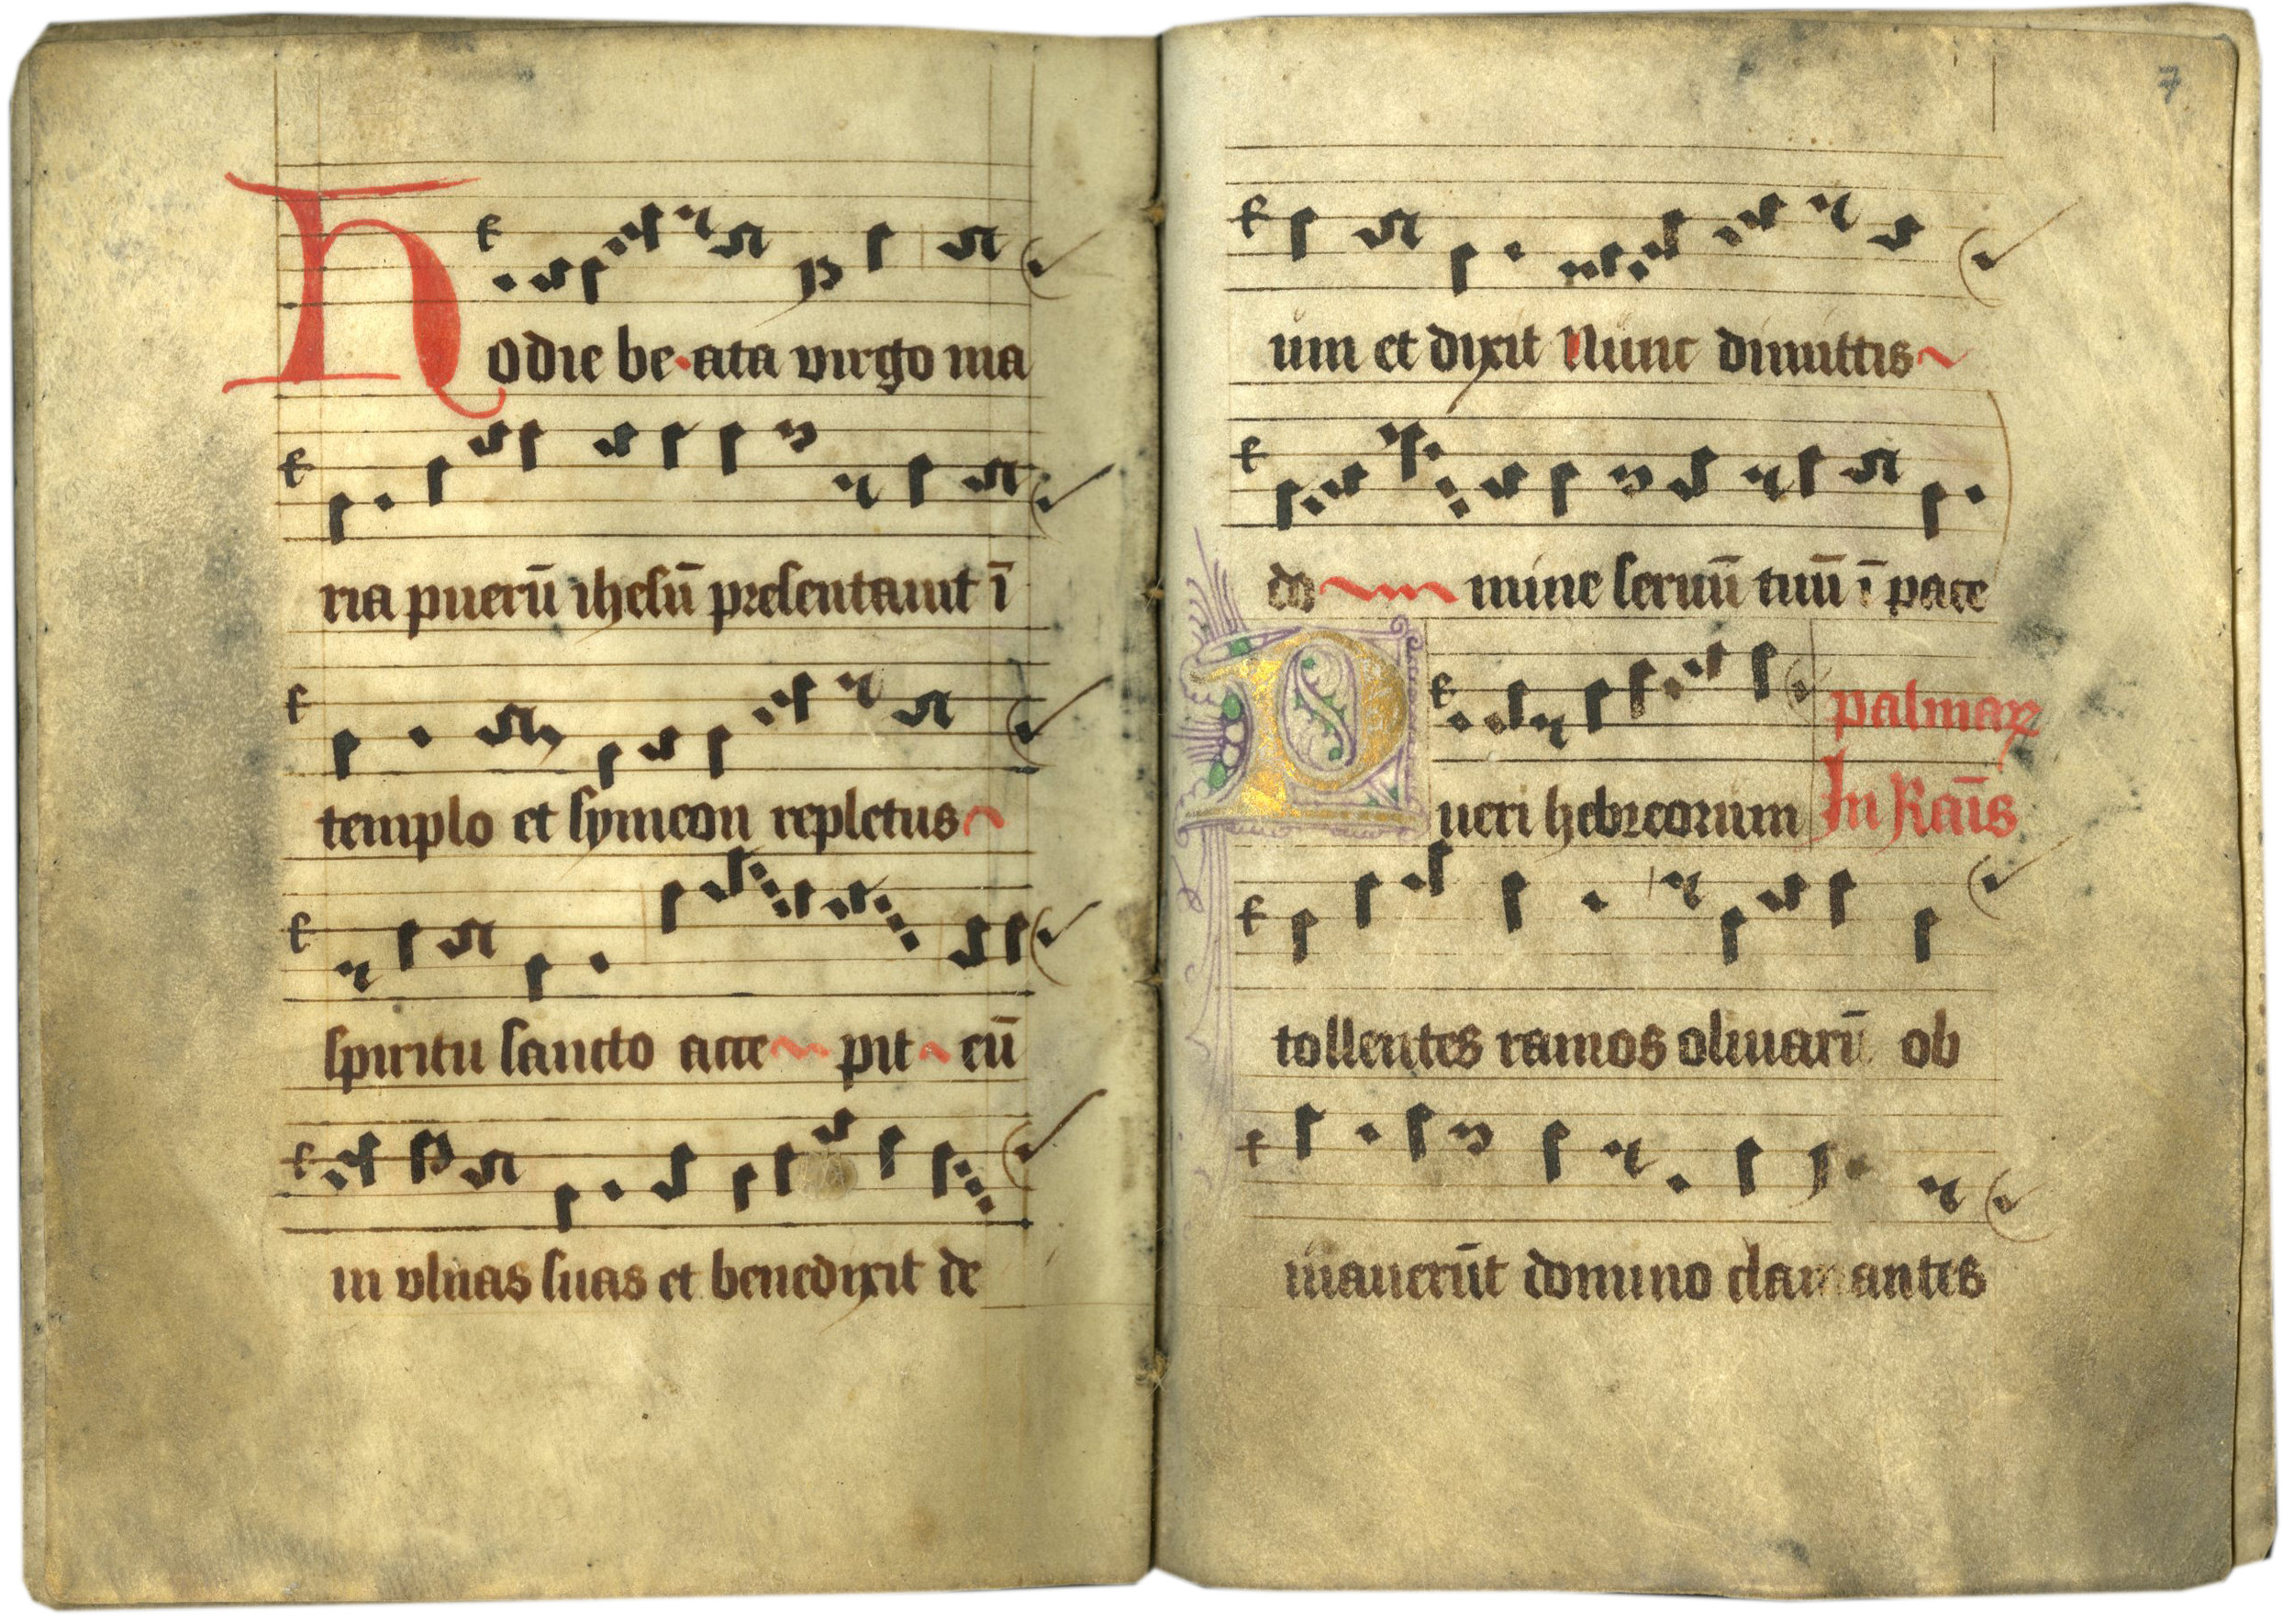 Hodie be ata virgo ma
ria puerū ihesū presentauit ī
templo et symeon repletus
spiritu sancto acce pit eū
in vlnas suas et benedixit de
7
um et dixit Nunc dimittis
do mine seruū tuū ī pace
palmaꝝ
Pueri hebreorum In Ramis
tollentes ramos oliuarū ob
uiauerūt domino clamantes